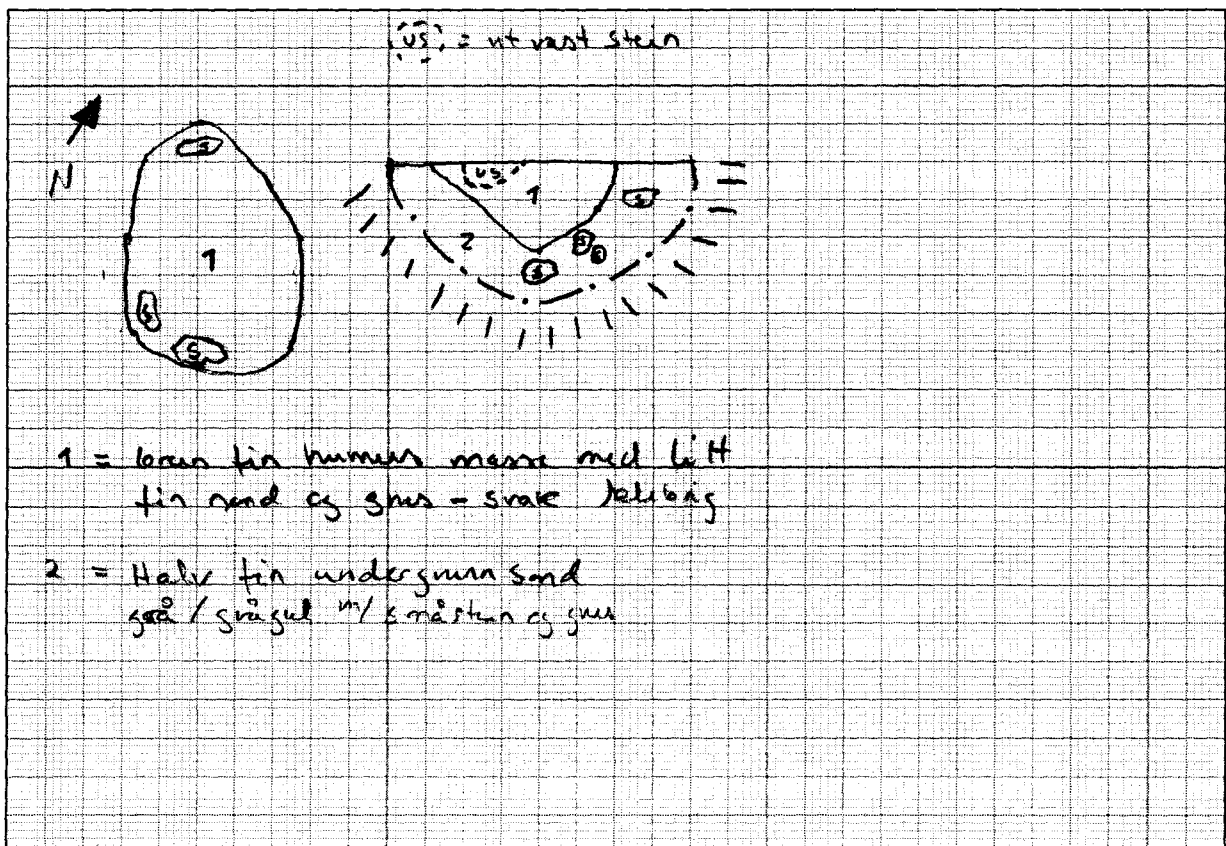 US = ut vast stein
N
S
1
S
S
US
1
S
2
S
S
S
1 = brun fin humus masse med litt
fin sand og grus - svak
2 = Halv fin undergrunn sand
grå / grågul m/ småstein og grus